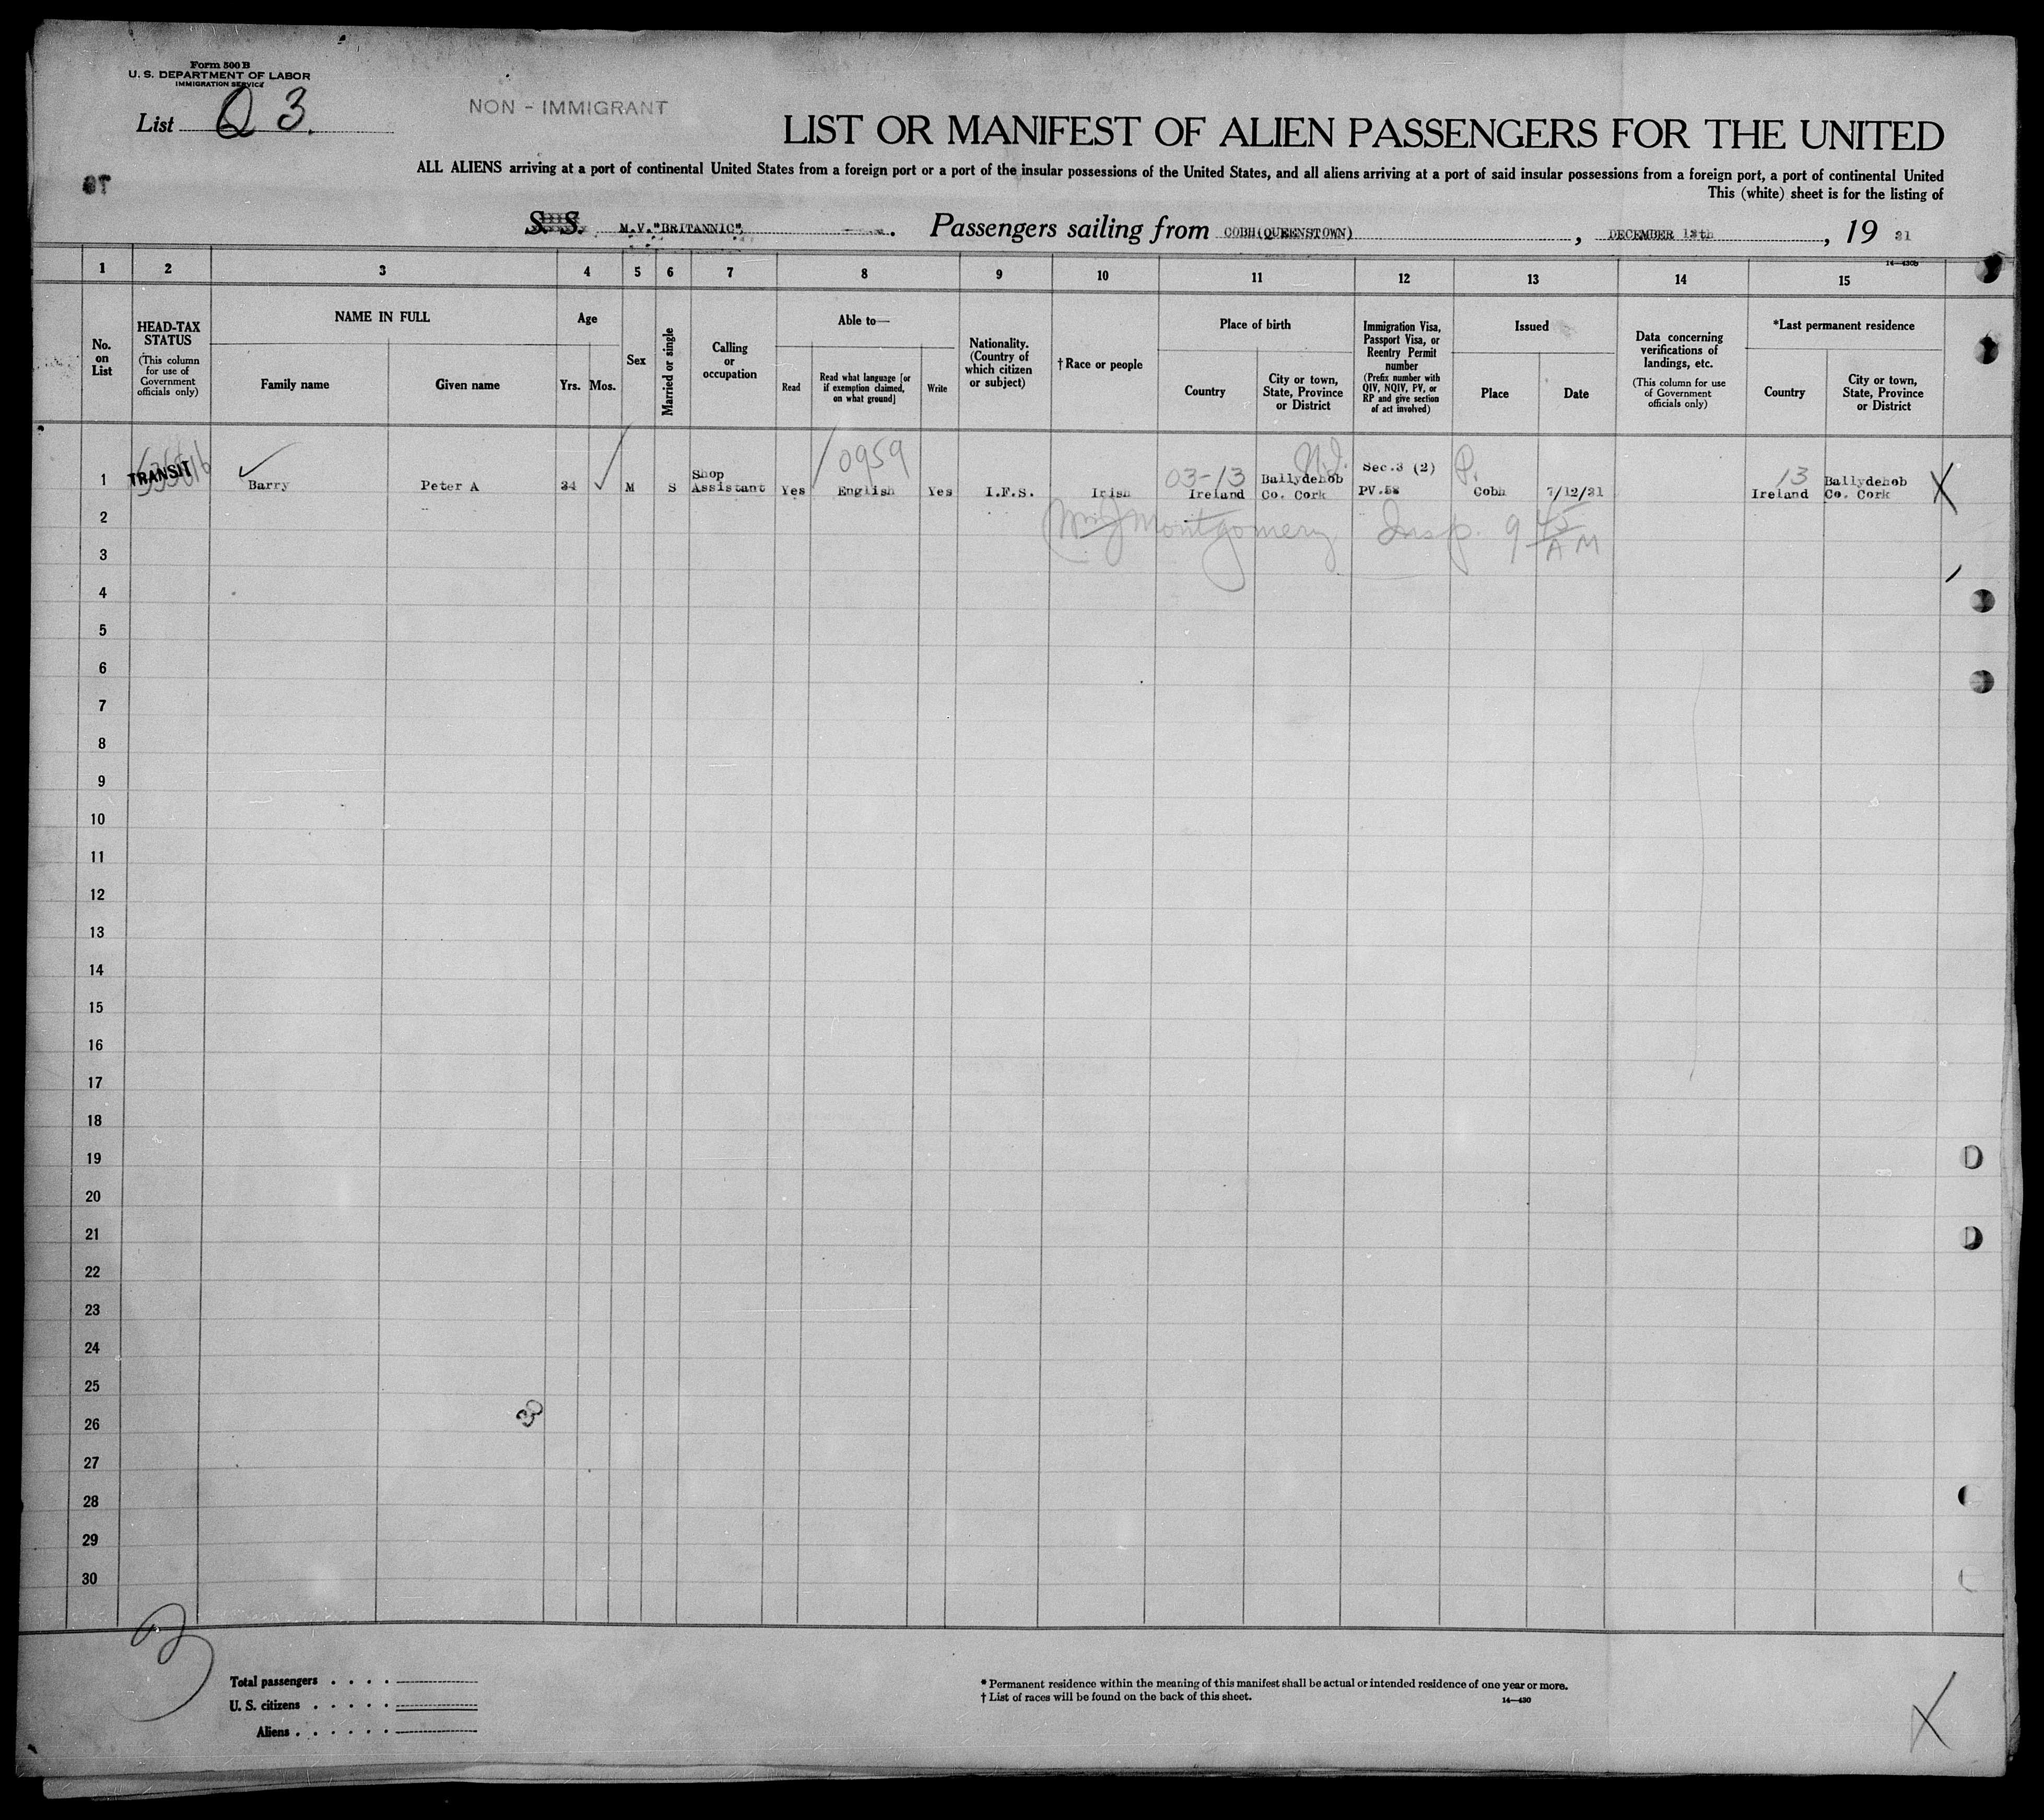 Form 500 B
U. S. DEPARTMENT OF LABOR
IMMIGRATION SERVICE
List Q 3.
NON - IMMIGRANT
LIST OR MANIFEST OF ALIEN PASSENGERS FOR THE UNITED
ALL ALIENS arriving at a port of continental United States from a foreign port or a port of the insular possessions of the United States, and all aliens arriving at a port of said insular possessions from a foreign port, a port of continental United
This (white) sheet is for the listing of
S. S. M.V."BRITANNIC", Passengers sailing from COBH(QUEENSTOWN), DECEMBER 13th, 19 31
14—430b
1 2 3 4 5 6 7 8 9 10 11 12 13 14 15
No. on List
HEAD-TAX STATUS
(This column for use of Government officials only)
NAME IN FULL
Family name
Given name
Age
Yrs. Mos.
Sex
Married or single
Calling or occupation
Able to—
Read
Read what language [or if exemption claimed, on what ground]
Write
Nationality. (Country of which citizen or subject)
†Race or people
Place of birth
Country
City or town, State, Province or District
Immigration Visa, Passport Visa, or Reentry Permit number
(Prefix number with QIV, NQIV, PV, or RP and give section of act involved)
Issued
Place
Date
Data concerning verifications of landings, etc.
(This column for use of Government officials only)
*Last permanent residence
Country
City or town, State, Province or District
0959
03-13 N.J. P. 13
1 TRANSIT Barry Peter A 34 M S Shop Assistant Yes English Yes I.F.S. Irish Ireland Ballydehob Co. Cork Sec.3 (2) PV.58 Cobh 7/12/31 Ireland Ballydehob Co. Cork X
Wm J Montgomery Insp. 9 45 AM
2
3
4
5
6
7
8
9
10
11
12
13
14
15
16
17
18
19
20
21
22
23
24
25
26
27
28
29
30
30
Total passengers . . . .
U. S. citizens . . . . .
Aliens . . . . . .
* Permanent residence within the meaning of this manifest shall be actual or intended residence of one year or more.
† List of races will be found on the back of this sheet.
14—430
X